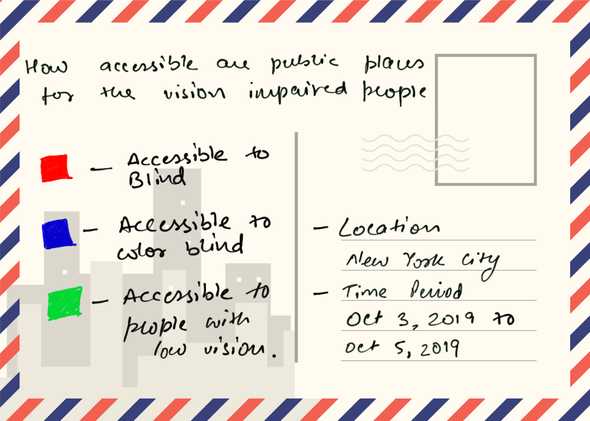 How accessible are public places
for the vision impaired people
– Accessible to
Blind
– Accessible to
color blind
– Accessible to
people with
low vision.
– Location
New York City
– Time Period
Oct 3, 2019 to
Oct 5, 2019